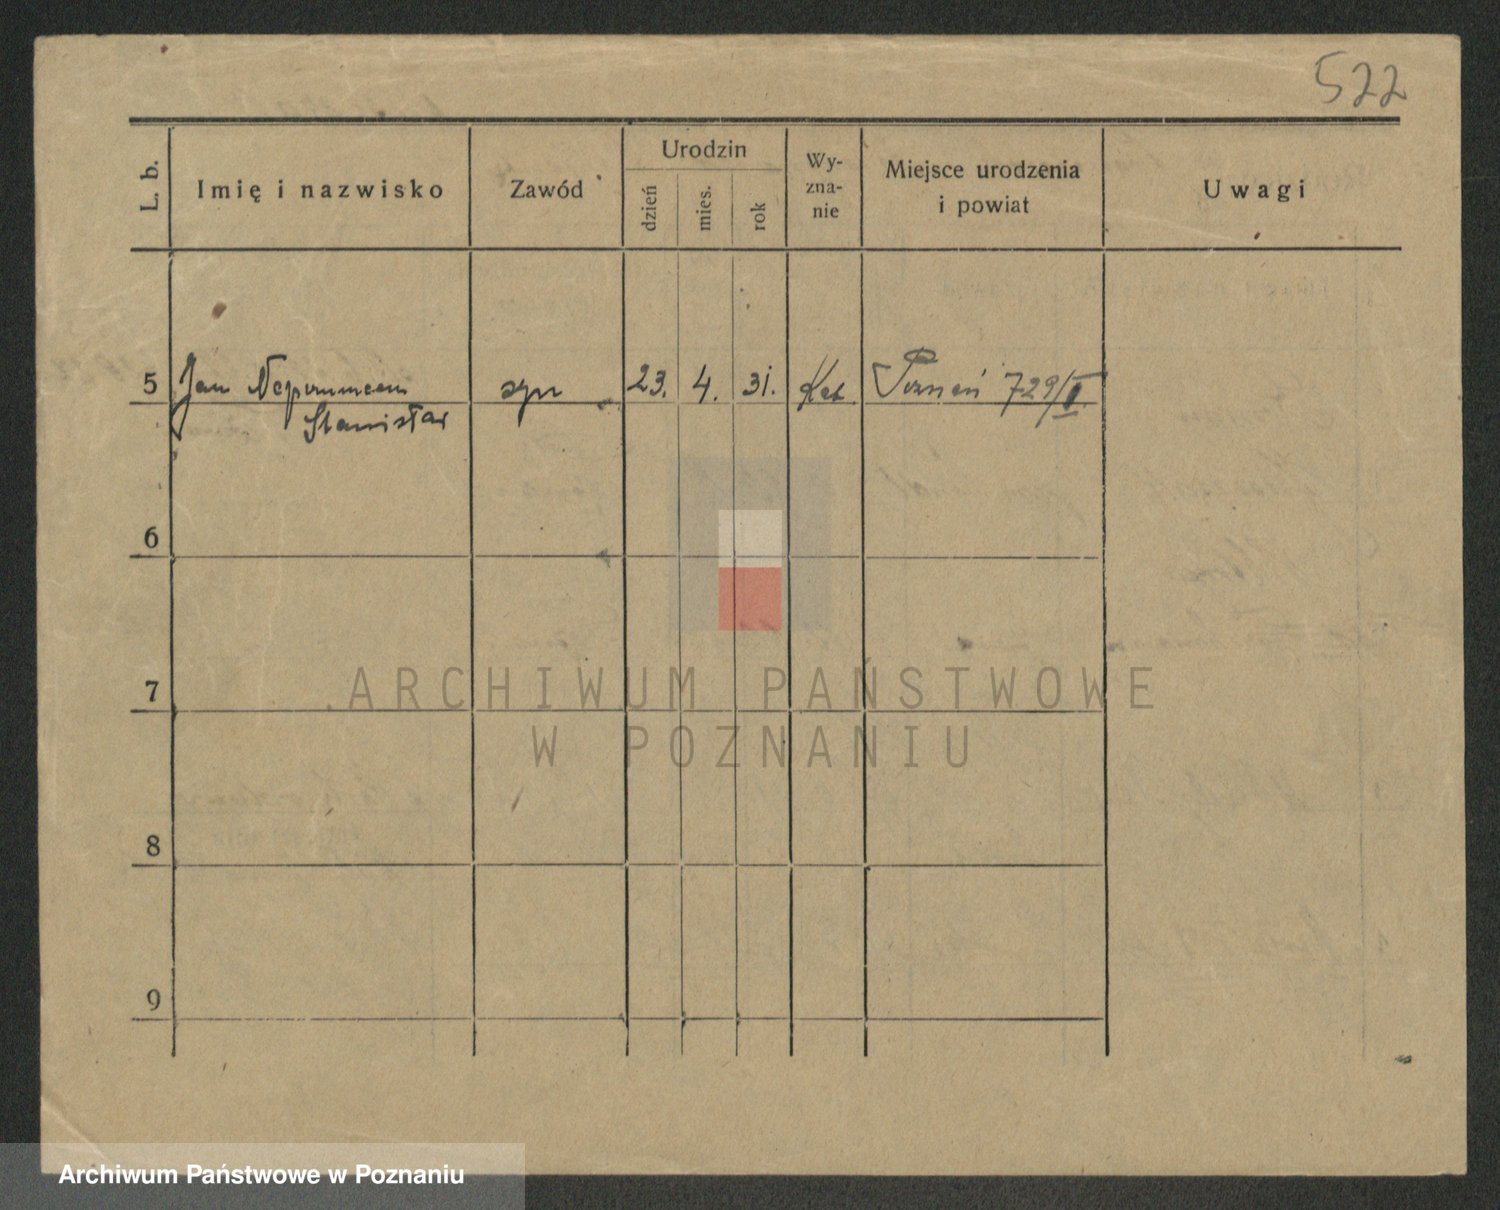 522
L. b.
Imię i nazwisko
Zawód
Urodzin
dzień
mies.
rok
Wy-
zna-
nie
Miejsce urodzenia
i powiat
Uwagi
5 Jan Nepomucen syn 23. 4. 31. Kat. Poznań 729/II
Stanisław
6
7
8
9
ARCHIWUM PAŃSTWOWE
W POZNANIU
Archiwum Państwowe w Poznaniu